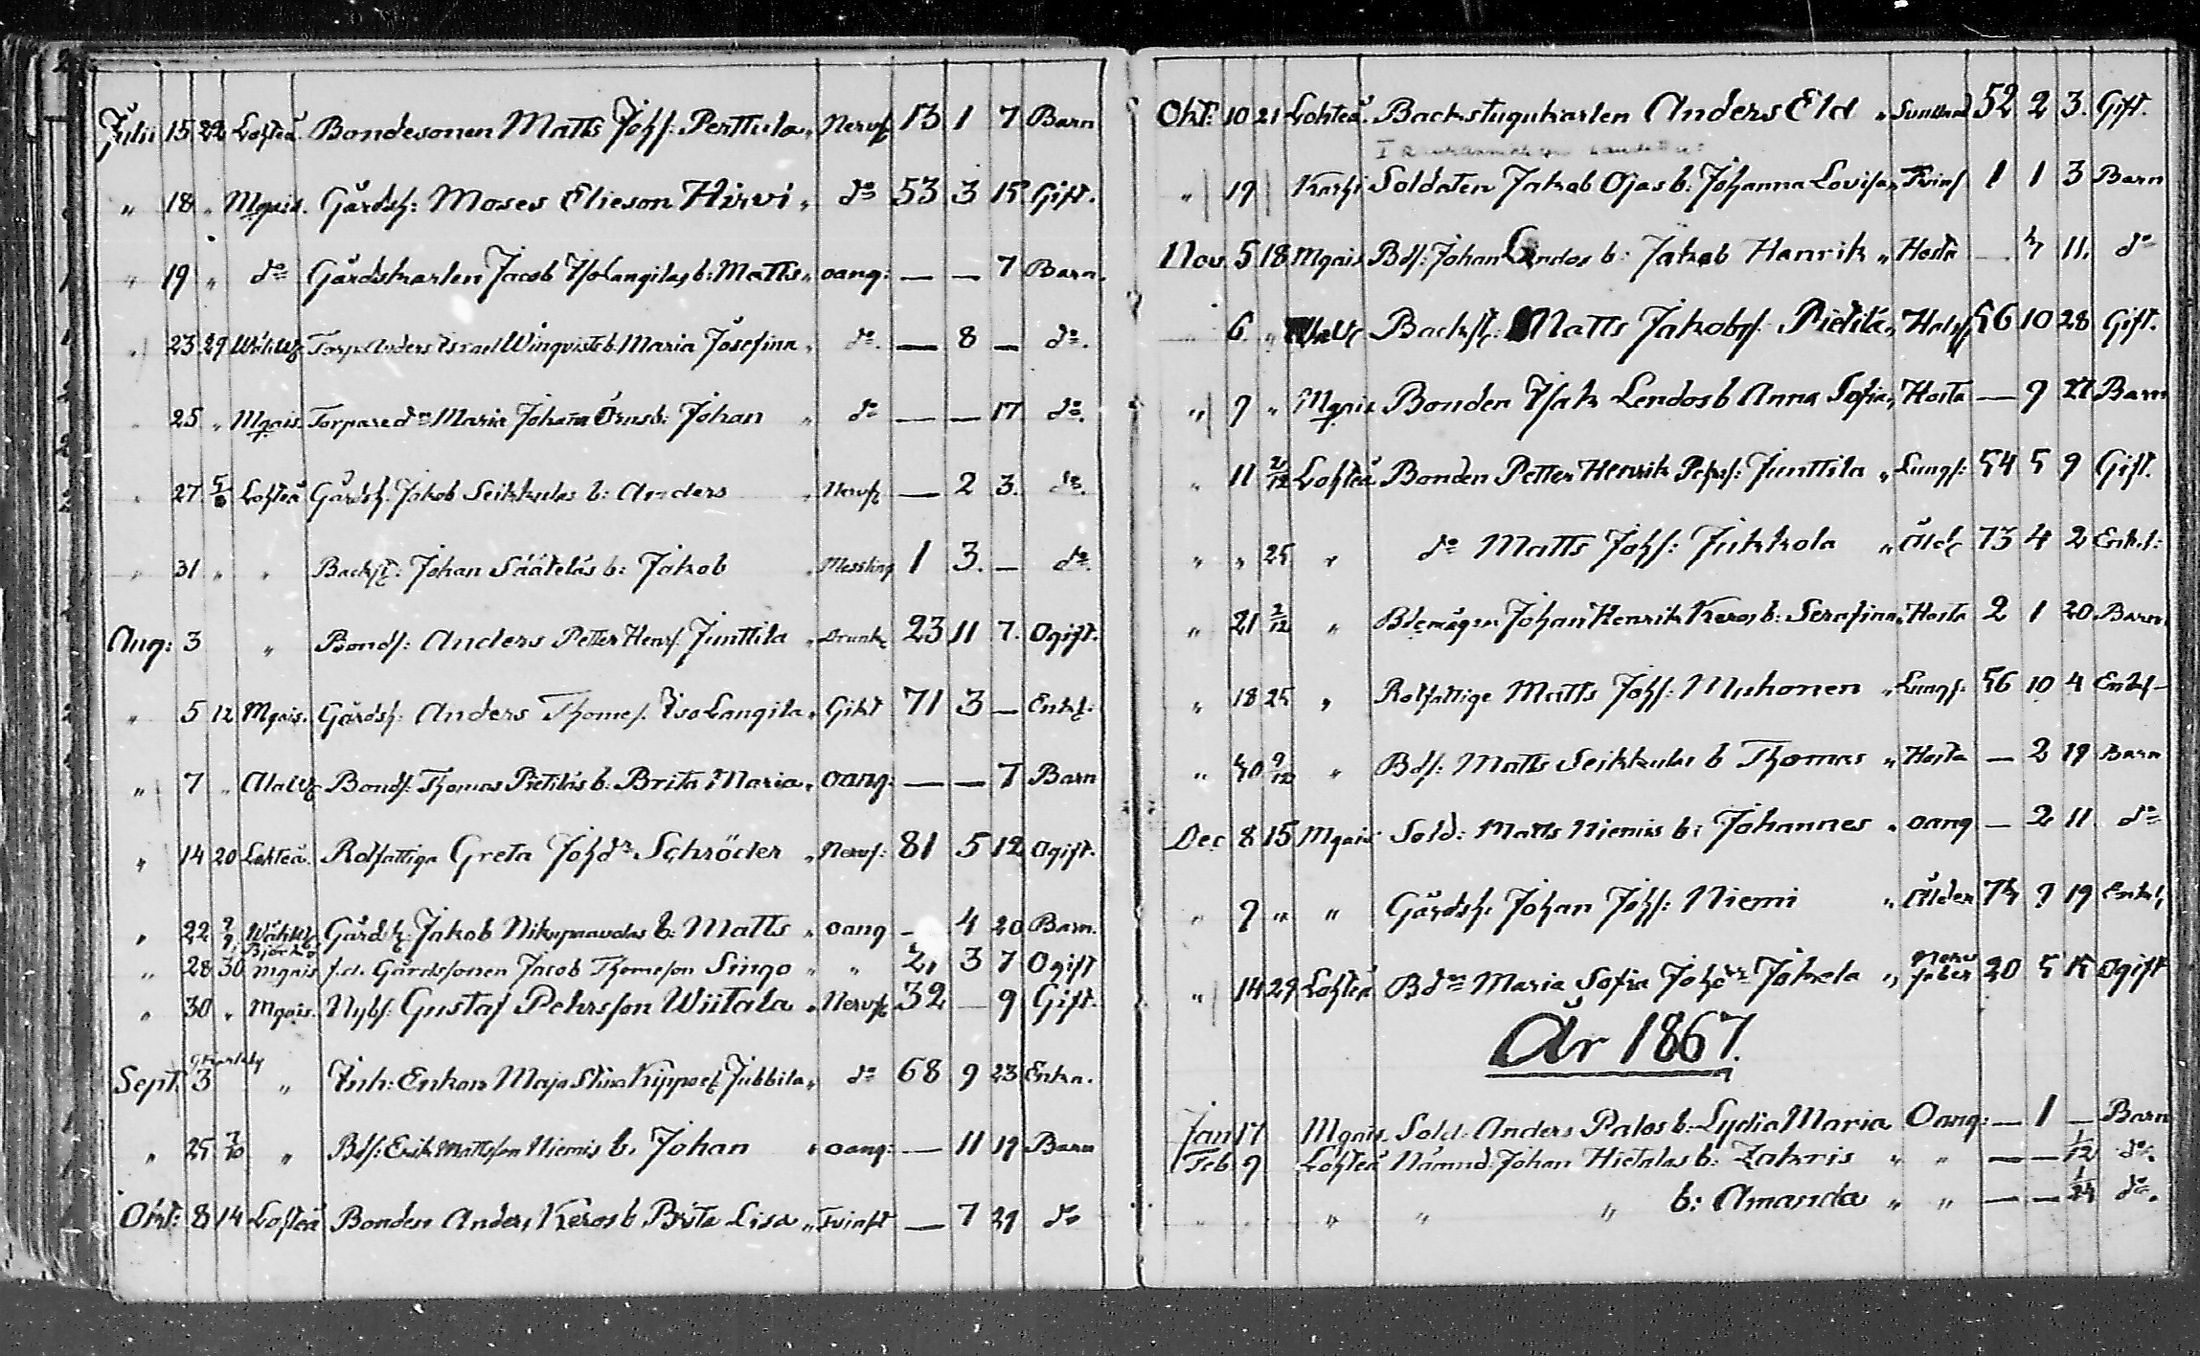 Julii 15 22 Lohteå. Bondesonen Matts Johs: Perttula „ Nervf. 13 1 7 Barn
„ 18 „ Mqais. Gårdsk: Moses Elieson Hirvi „ do 53 3 15 Gift.
„ 19 „ do Gårdskarlen Jacob Iso Langilas b: Matts „ oang: — — 7 Barn.
„ 23 29 Torp. Anders Israel Winqvists b. Maria Josefina „ do. — 8 — do.
25 „ Mqais. Torpare do Maria Johana Örns b: Johan „ do — — 17 do.
„ 27 Lohteå Gårdsk. Jakob Seikkulas b: Anders „ Nervf. — 2 3. do.
„ 31 „ „ Backst: Johan Sääteläs b: Jakob „ Messling 1 3. — do.
Aug: 3 „ Bonds: Anders Petter Henrs. Junttila „ Drunk. 23 11 7. Ogift.
„ 5 12 Mqais. Gårdsk: Anders Thomes. Iso Langila „ Gikt 71 3 — Enkl:
„ 7 „ Bonds: Thomas Pietiläs b. Brita Maria „ oang: — — 7 Barn
„ 14 20 Lohteå. Rotfattiga Greta Johdr Schröder „ Nervf: 81 5 12 Ogift.
„ 22 7/9 Gårdsk. Jakob Nikupaavolas b: Matts „ oang — 4 20 Barn.
„ 28 30 Mqais f.d. Gårdssonen Jacob Thomeson Singo „ „ 21 3 7 Ogift
„ 30 „ Mqais. Nybs: Gustaf Pehrsson Wiitala „ Nervf. 32 — 9 Gift.
Sept. 3 „ Inh: Enkan Maja Stina Jubbila „ do 68 9 23 Enka.
„ 25 7/10 „ Bds: Erik Mattsson Niemis b. Johan „ oang: — 11 19 Barn
Okt: 8 14 Lohteå Bonden Anders Keros b Brita Lisa „ Tvinst — 7 29 do
Okt: 10 21 Lohteå. Backstugukarlen Anders Eld „ 52 2 3. Gift.
„ 19 Soldaten Jakob Ojas b: Johanna Lovisa „ Tvins 1 1 3 Barn
Nov. 5 18 Mqais Bds: Johan Lendos b: Jakob Henrik „ Hosta — 11. do
6 „ Backst: Matts Jakobss. Pietilä „ 56 10 28 Gift.
„ 9 „ Mqais Bonden Isak Lendos b Anna Sofia „ Hosta — 9 27 Barn
„ 11 2/12 Lohteå Bonden Petter Henrik Pehrs: Junttila „ Lungs: 54 5 9 Gift.
„ „ 25 „ do Matts Johs: Jukkola „ Åld. 73 4 2 Enkl:
„ 21 2/12 „ Bdemågen Johan Henrik Keros b: Serafina „ Hosta 2 1 20 Barn.
„ 18 25 „ Rotfattige Matts Johs: Muhonen „ Lungs. 56 10 4 Enkl
„ 30 9/12 „ Bds: Matts Seikkulas b Thomas „ Hosta — 2 19 Barn
Dec 8 15 Mqais Sold: Matts Niemis b: Johannes „ oang — 2 11 do
„ 9 „ „ Gårdsk. Johan Johs: Niemi „ Ålder 73 9 19 Enkl
„ 14 29 Lohteå Bdr Maria Sofia Johdr Jokela „ Nerv feber 20 5 15 Ogift
År 1867.
Jan 17 Mqais. Sold: Anders Palos b: Lydia Maria Oang: — 1 — Barn
Feb 9 Lohteå Nämnd: Johan Hietalas b: Zakris „ „ — — 1/12 do.
„ „ „ b: Amanda „ „ — — 1/24 do.